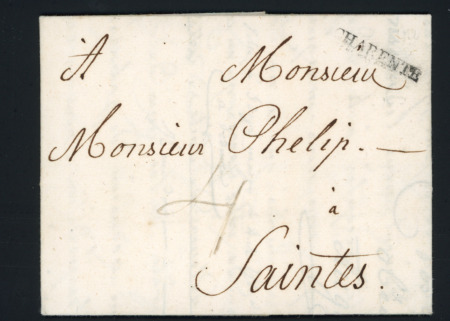 CHARENTE
A Monsieur
Monsieur Phelip. —
4
à
Saintes.